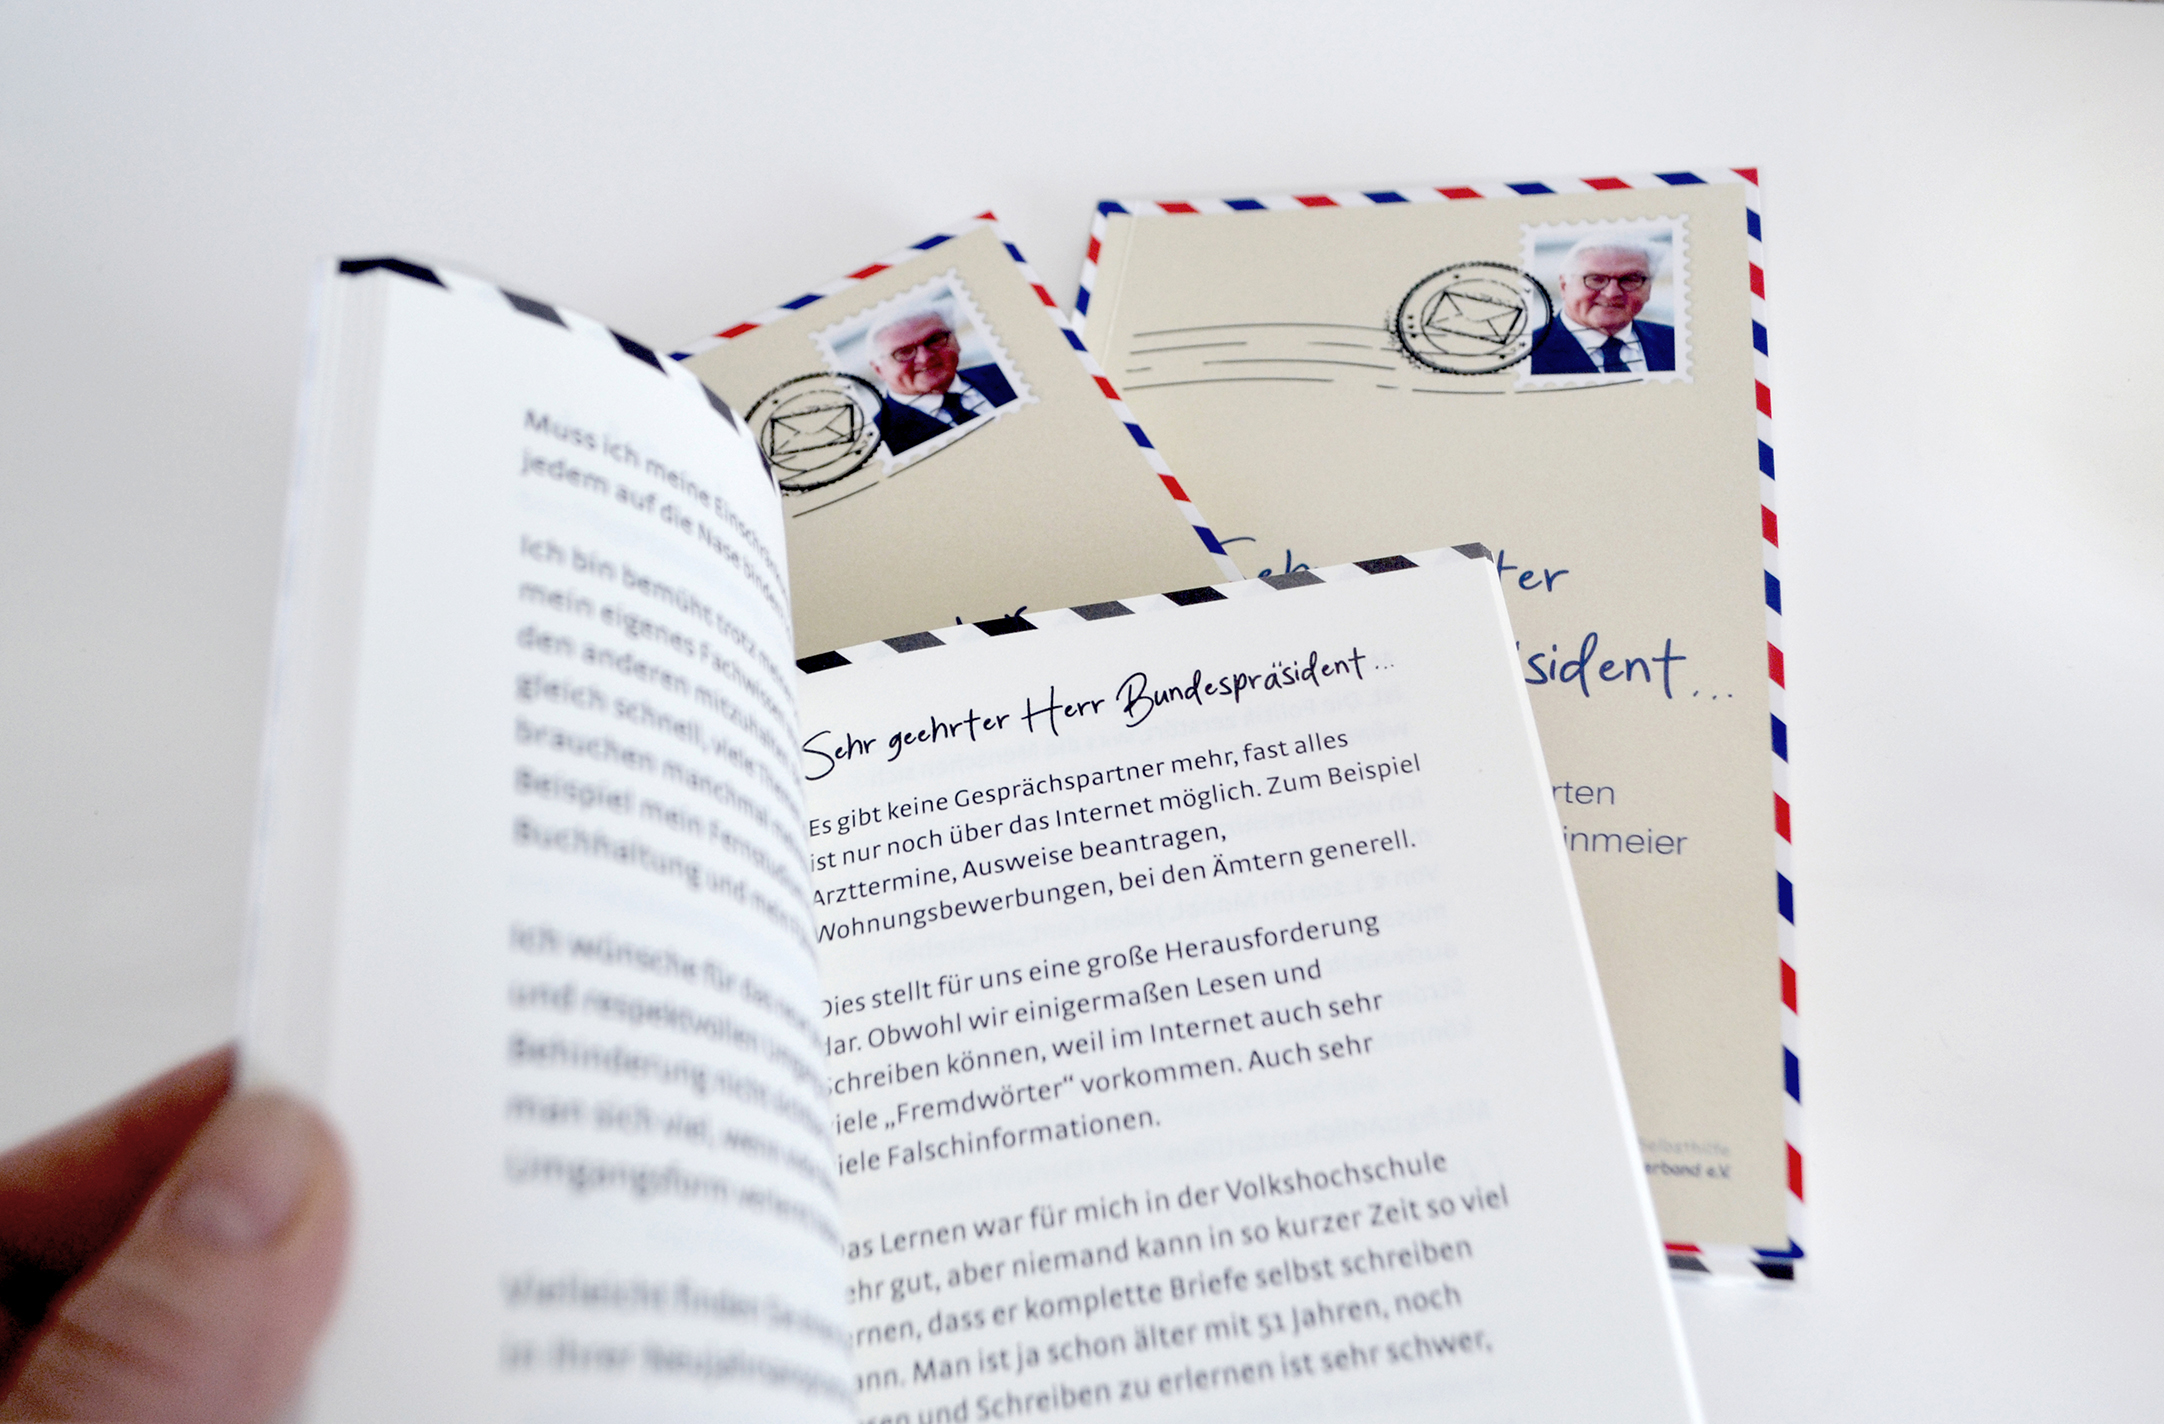 Muss ich meine
jedem auf die Nase binden
Ich bin bemüht trotz
mein eigenes Fachwissen
den anderen mitzuhalten
gleich schnell, viele
brauchen manchmal
Beispiel mein Fernstudium
Buchhaltung und mein
Ich wünsche für das neue
und respektvollen
Behinderung nicht
man sich viel, wenn
Umgangsform
Vielleicht finden Sie
in Ihrer
Sehr geehrter Herr Bundespräsident...
Es gibt keine Gesprächspartner mehr, fast alles
ist nur noch über das Internet möglich. Zum Beispiel
Arzttermine, Ausweise beantragen,
Wohnungsbewerbungen, bei den Ämtern generell.
Dies stellt für uns eine große Herausforderung
dar. Obwohl wir einigermaßen Lesen und
Schreiben können, weil im Internet auch sehr
viele „Fremdwörter“ vorkommen. Auch sehr
viele Falschinformationen.
as Lernen war für mich in der Volkshochschule
ehr gut, aber niemand kann in so kurzer Zeit so viel
rnen, dass er komplette Briefe selbst schreiben
ann. Man ist ja schon älter mit 51 Jahren, noch
sen und Schreiben zu erlernen ist sehr schwer,
ter
sident...
rten
inmeier
Selbsthilfe
erband e.V.